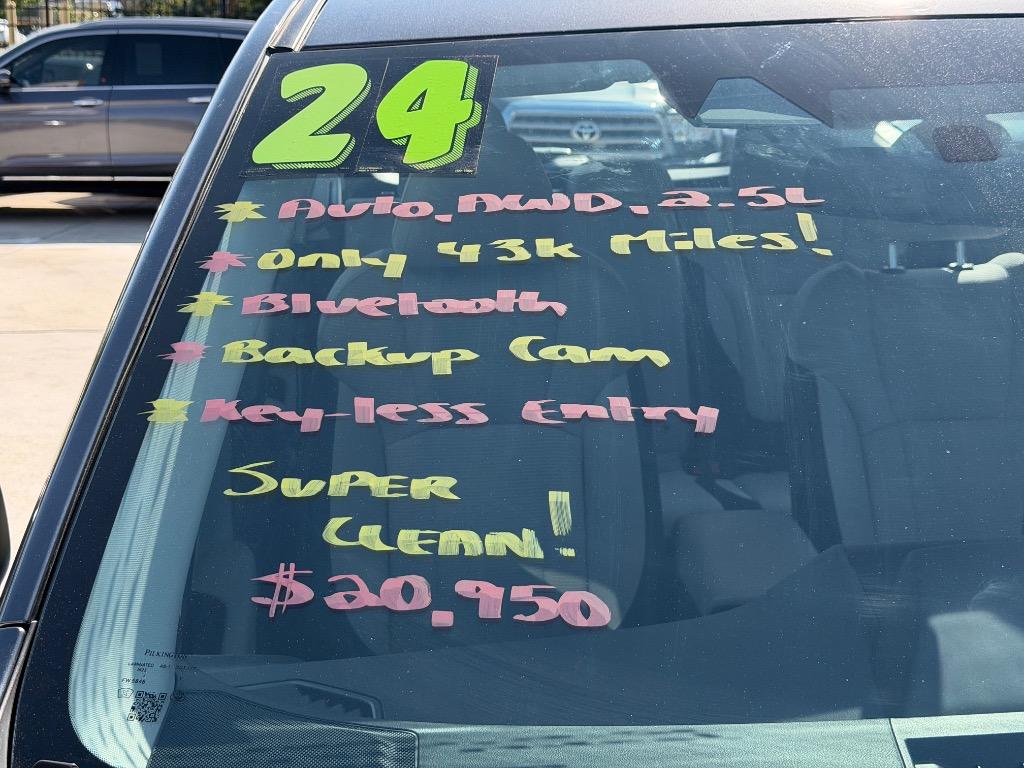 24
* Auto, AWD, 2.5L
* Only 43k Miles!
* Bluetooth
* Backup Cam
* Key-less Entry
SUPER
CLEAN!
$20,950
PILKINGTON
LAMINATED